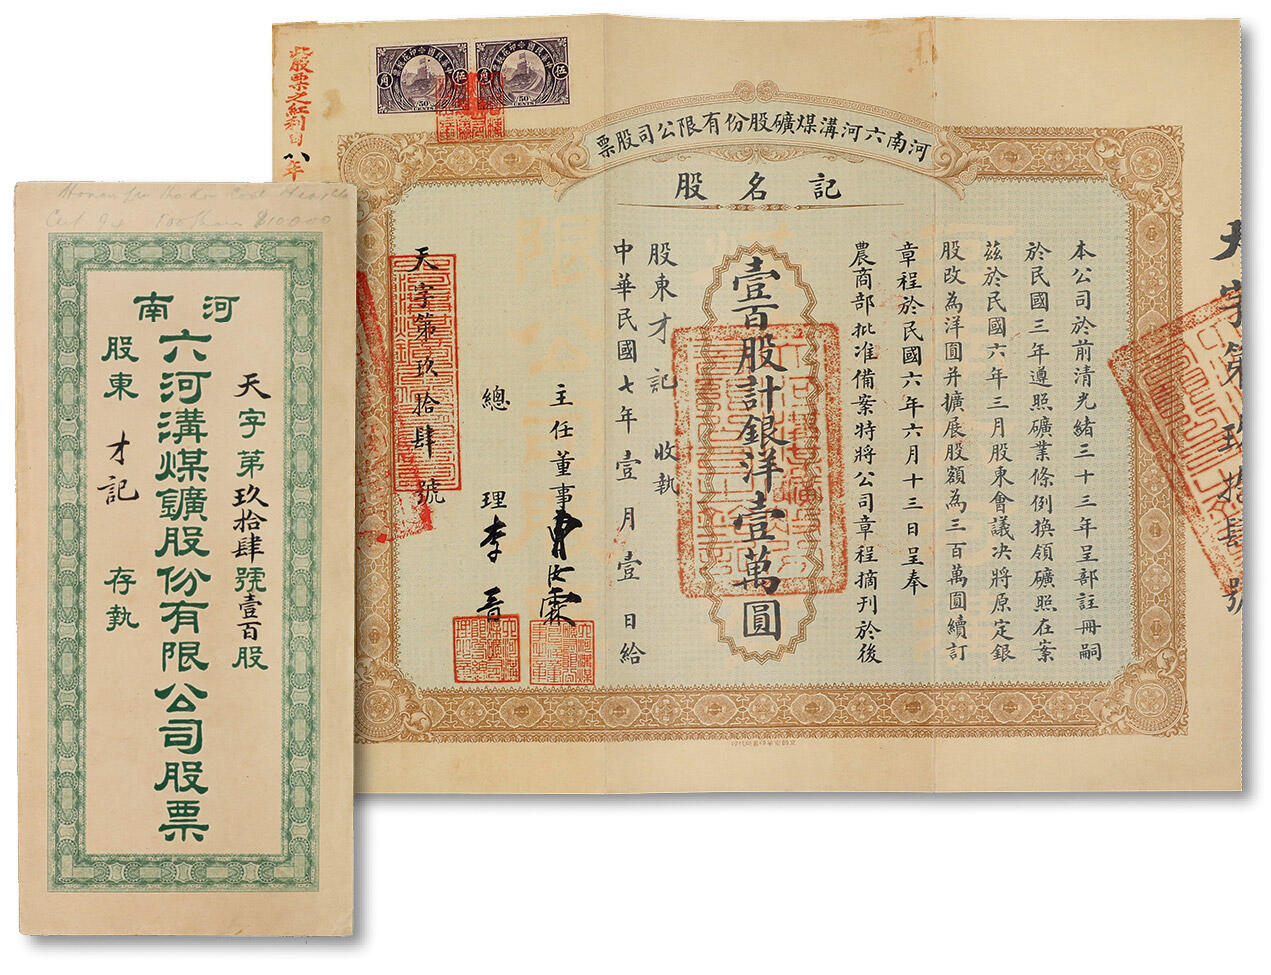 Cert 94 100 shares $10000
河南
六河溝煤鑛股份有限公司股票
天字第玖拾肆號壹百股
股東 才記 存執
此股票之紅利自八年
中華民國印花税票
伍 角
50 CENTS
中華民國印花税票
伍 角
50 CENTS
河南六河溝煤礦股份有限公司股票
記名股
本公司於前清光緒三十三年呈部註冊嗣
於民國三年遵照礦業條例換領礦照在案
茲於民國六年三月股東會議決將原定銀
股改為洋圓并擴展股額為三百萬圓續訂
章程於民國六年六月十三日呈奉
農商部批准備案特將公司章程摘刊於後
壹百股計銀洋壹萬圓
股東才記 收執
中華民國七年壹月壹日給
主任董事
總理李晉
天字第玖拾肆號
天字第玖拾肆號